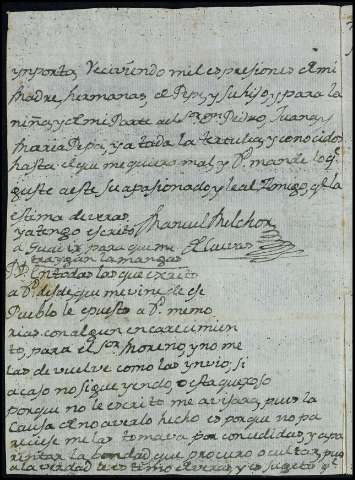 ynporta, Reciviendo mil espresiones de mi
Madre, hermanas, de Pepe, y su hijo, y para la
niña, y de mi Parte a los Sres Dn Pedro, Juana, y
Maria Pepa, y a toda la tertulia, y conocidos
hasta el que me quiera mal, y Vd. mande lo qe.
guste a este su apasionado, y leal Amigo, qe. le
estima deveras
Manuel Melchor
ya tengo escrito
a para que me
traygan la manga
PD. En todas las que e escrito
a Vd. desde que me vine de ese
Pueblo le e puesto a Vd. memo
rias con algun encarecimien
to, para el Sor. Moreno, y no me
las devuelve como las ynvio; si
acaso no sigue yendo, o esta quexoso
porque no le e escrito me avisara, pues la
causa de no averlo hecho es porque no pa
reciese me las tomava por concedidas, y apa
rentar la bondad que procuro ocultar, pues
a la verdad le estimo deveras, y es sugeto qe.